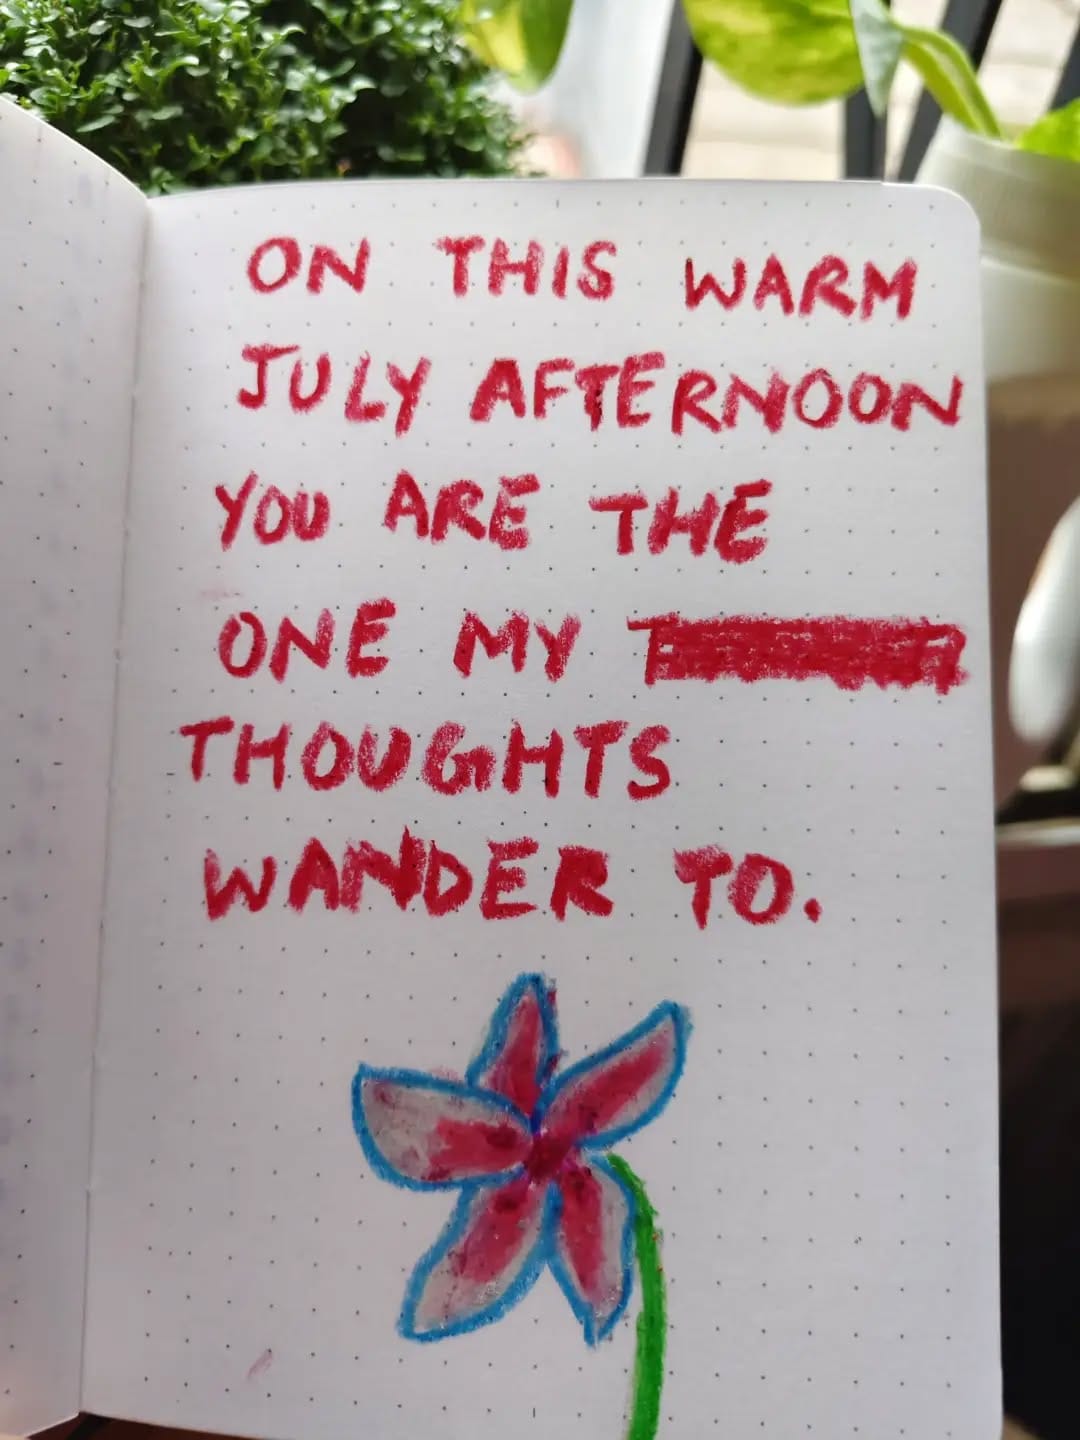 ON THIS WARM
JULY AFTERNOON
YOU ARE THE
ONE MY
THOUGHTS
WANDER TO.